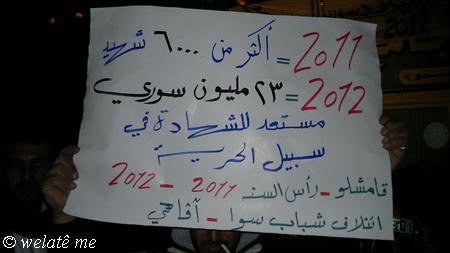 2011 = أكثر من ٦٠٠٠ شهيد
2012 = ٢٣ مليون سوري
مستعد للشهادة في
سبيل الحرية
قامشلو - رأس السنه 2011 - 2012
ائتلاف شباب سوا - آفاهي
© welatê me